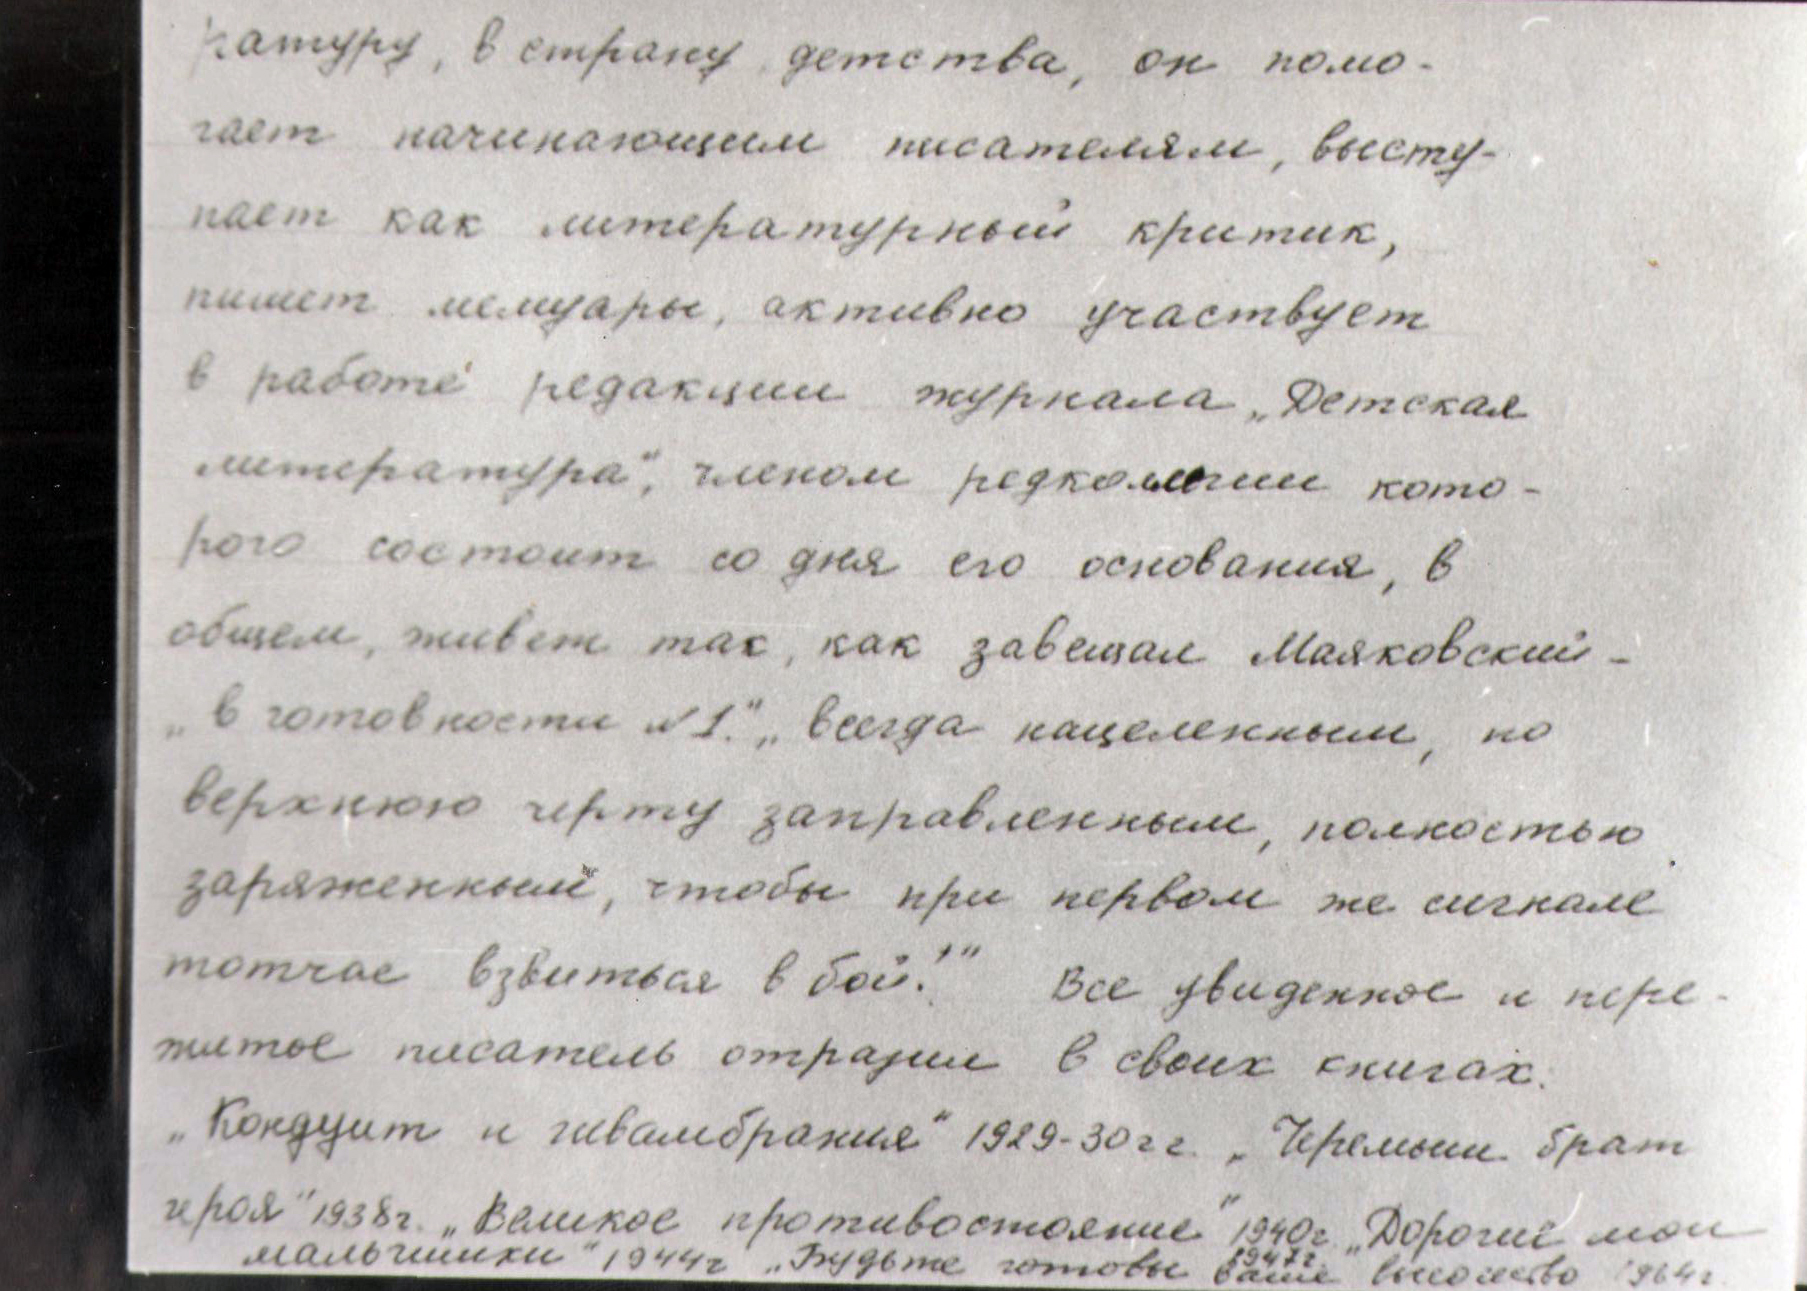 ратуру, в страну детства, он помо-
гает начинающим писателям, высту-
пает как литературный критик,
пишет мемуары, активно участвует
в работе редакции журнала „Детская
литература“, членом редколлегии кото-
рого состоит со дня его основания, в
общем, живет так, как завещал Маяковский –
„в готовности №1.“ „всегда нацеленным, по
верхнюю черту заправленным, полностью
заряженным, чтобы при первом же сигнале
тотчас взвиться в бой!“ Все увиденное и пере-
житое писатель отразил в своих книгах.
„Кондуит и швамбрания“ 1929-30гг. „Черемыш брат
героя“ 1938г. „Великое противостояние“ 1940г. „Дорогие мои
1947г
мальчишки“ 1944г „Будьте готовы ваше высочество 1964г.